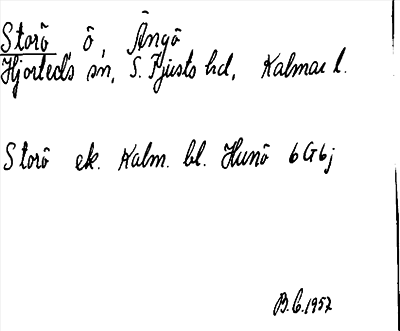 Storö ö, Ängö
Hjorteds sn, S. Tjusts hd, Kalmar l.
Storö ek. Kalm. bl. Hunö 6G6j
B.C. 1957